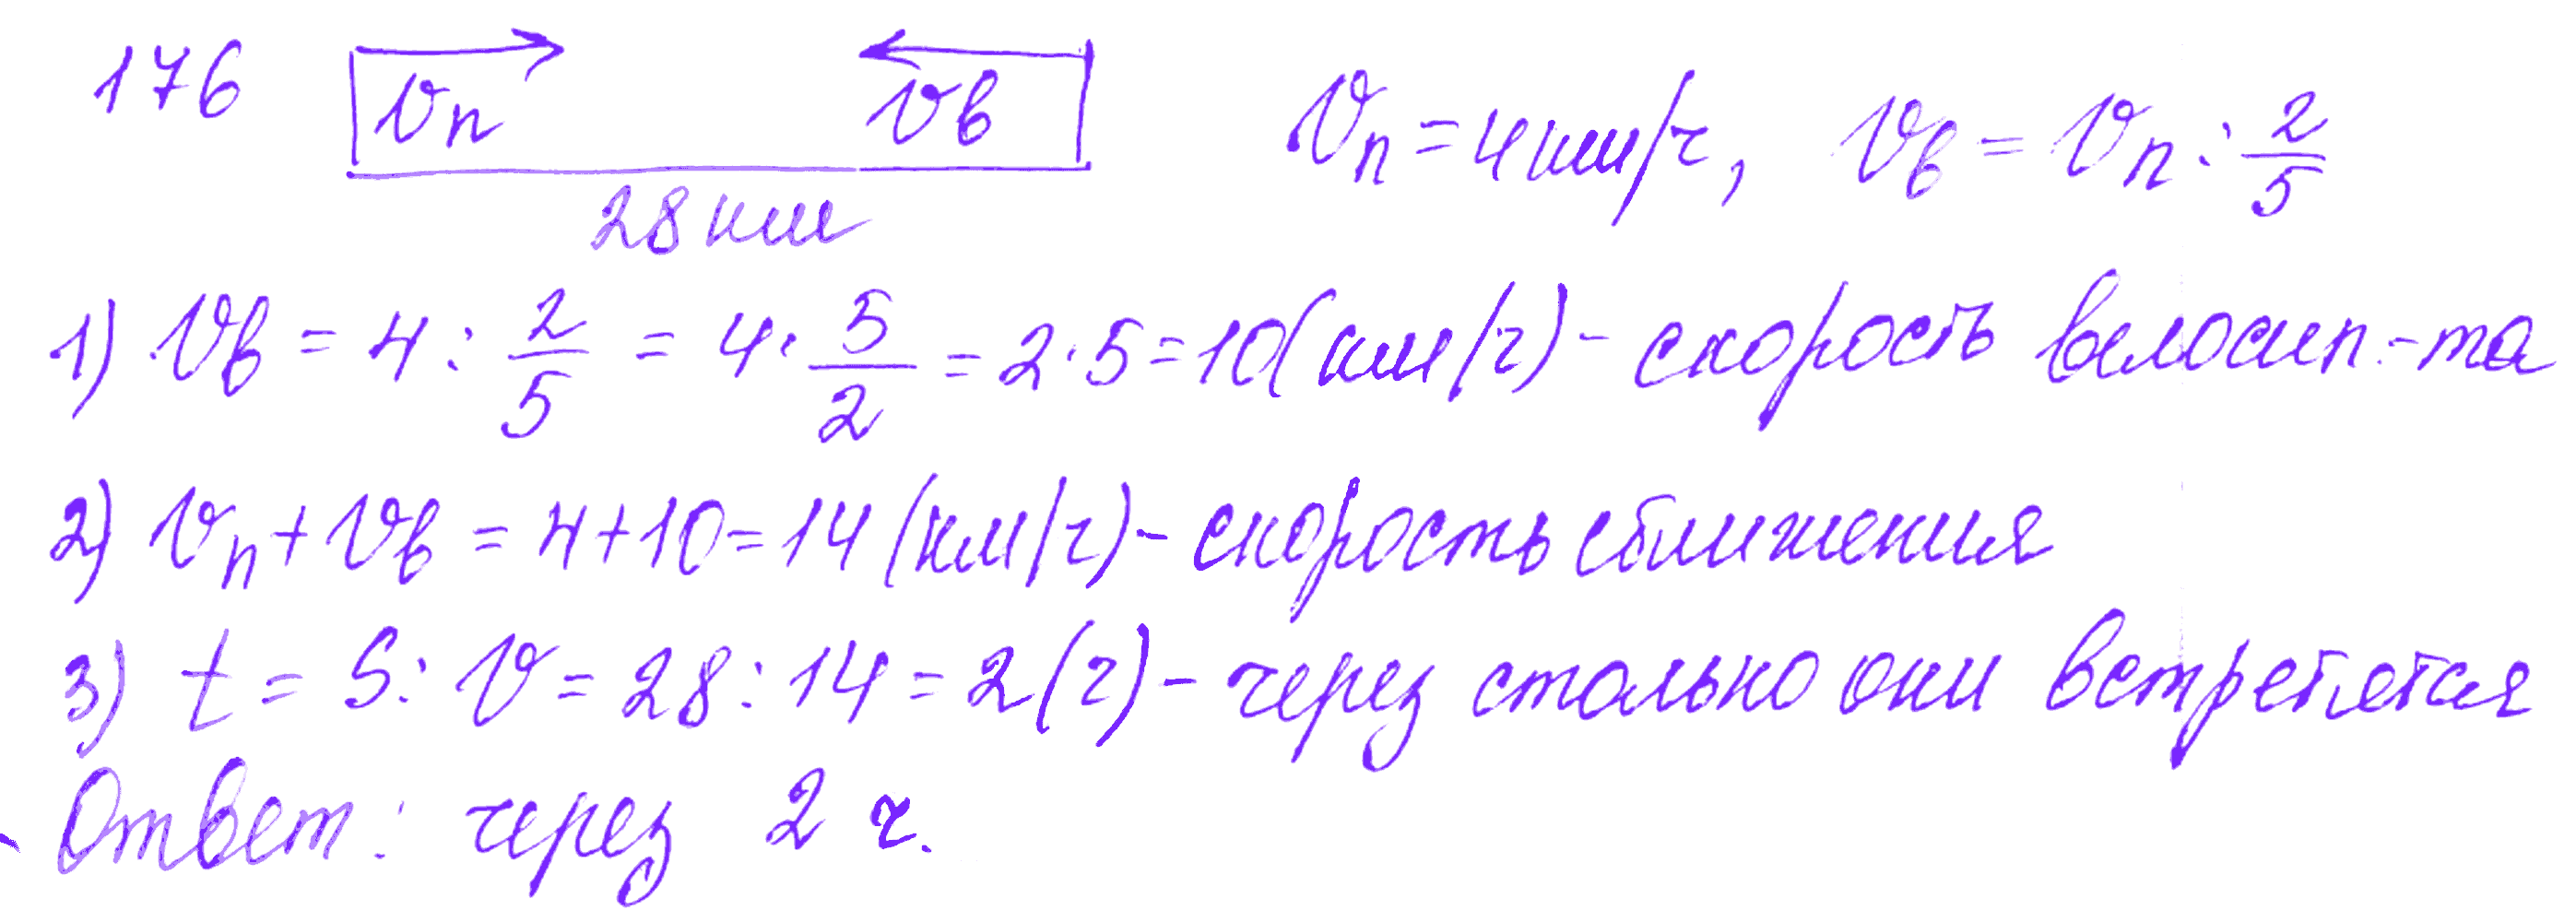 176 vп vв vп = 4 км/ч, vв = vп : 2/5
28 км
1) vв = 4 : 2/5 = 4 · 5/2 = 2 · 5 = 10 (км/ч) - скорость велосип.-та
2) vп + vв = 4 + 10 = 14 (км/ч) - скорость сближения
3) t = S : v = 28 : 14 = 2 (ч) - через столько они встретятся
Ответ: через 2 ч.